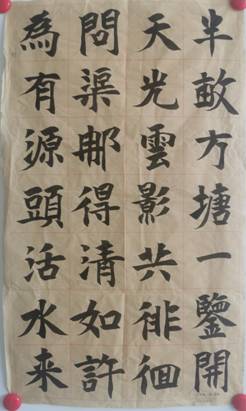 半畝方塘一鑒開
天光雲影共徘徊
問渠那得清如許
為有源頭活水来